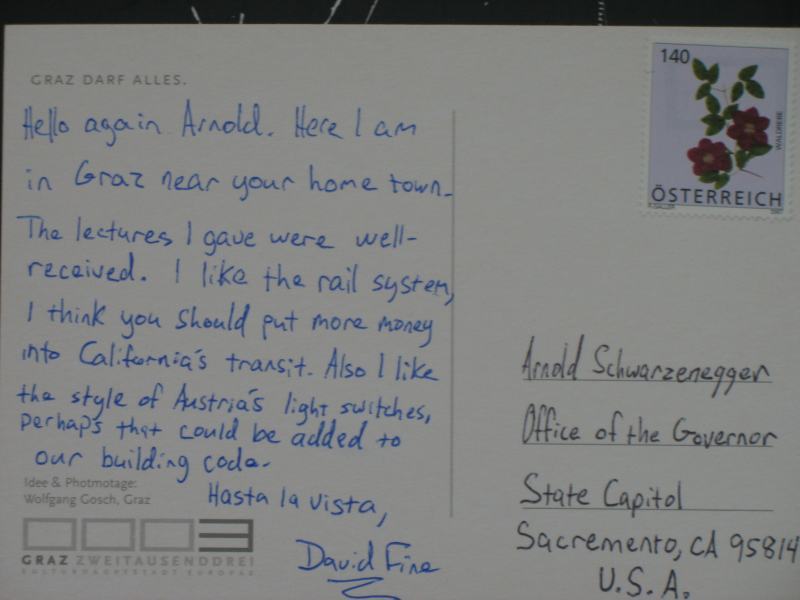 GRAZ DARF ALLES.
Hello again Arnold. Here I am
in Graz near your home town.
The lectures I gave were well-
received. I like the rail system,
I think you should put more money
into California's transit. Also I like
the style of Austria's light switches,
perhaps that could be added to
our building code.
Hasta la vista,
David Fine
Idee & Photmotage:
Wolfgang Gosch, Graz
0003
GRAZ ZWEITAUSENDDREI
KULTURHAUPTSTADT EUROPAS
140
WALDREBE
ÖSTERREICH
2007
Arnold Schwarzenegger
Office of the Governor
State Capitol
Sacremento, CA 95814
U.S.A.